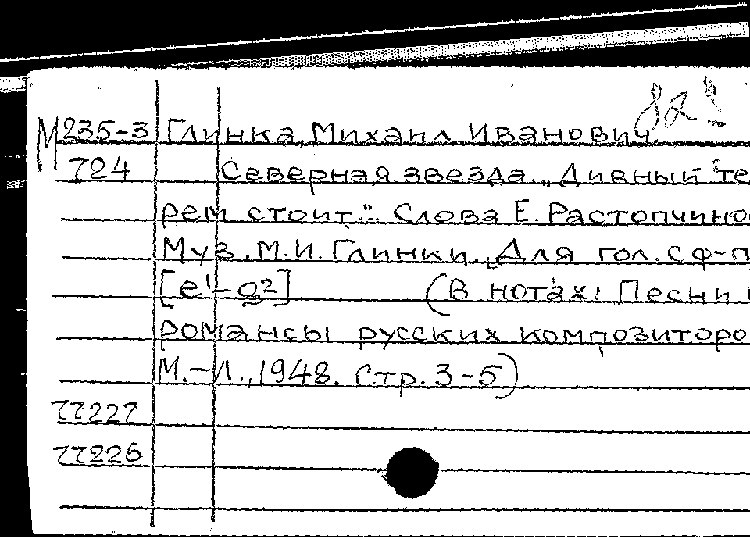 82
М235-3 Глинка, Михаил Иванович
724 Северная звезда. „Дивный те
рем стоит." Слова Е. Растопчино
Муз. М.И. Глинки. Для гол. с ф-п
[e¹-g²] (В нотах: Песни и
романсы русских композиторо
М.-Л., 1948. Стр. 3-5)
77227
77226